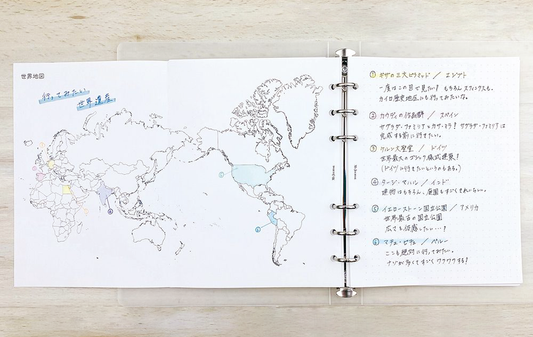 世界地図
行ってみたい
世界遺産
① ギザの三大ピラミッド / エジプト
一度はこの目で見たい! もちろんスフィンクスも。
カイロ歴史地区にも行ってみたいな。
② ガウディの作品群 / スペイン
サグラダ・ファミリアとカサ・ミラ! サグラダ・ファミリアは
完成する前に行きたい。
③ ケルン大聖堂 / ドイツ
世界最大のゴシック様式建築!
(ドイツに行きたいというのもある。)
④ タージ・マハル / インド
建物はもちろん、庭園もすごくきれいらしい。
⑤ イエローストーン国立公園 / アメリカ
世界最古の国立公園
広すぎて何日あったら…?
⑥ マチュ・ピチュ / ペルー
ここも絶対に行ってみたい。
ナゾが多くてすごくワクワクする!